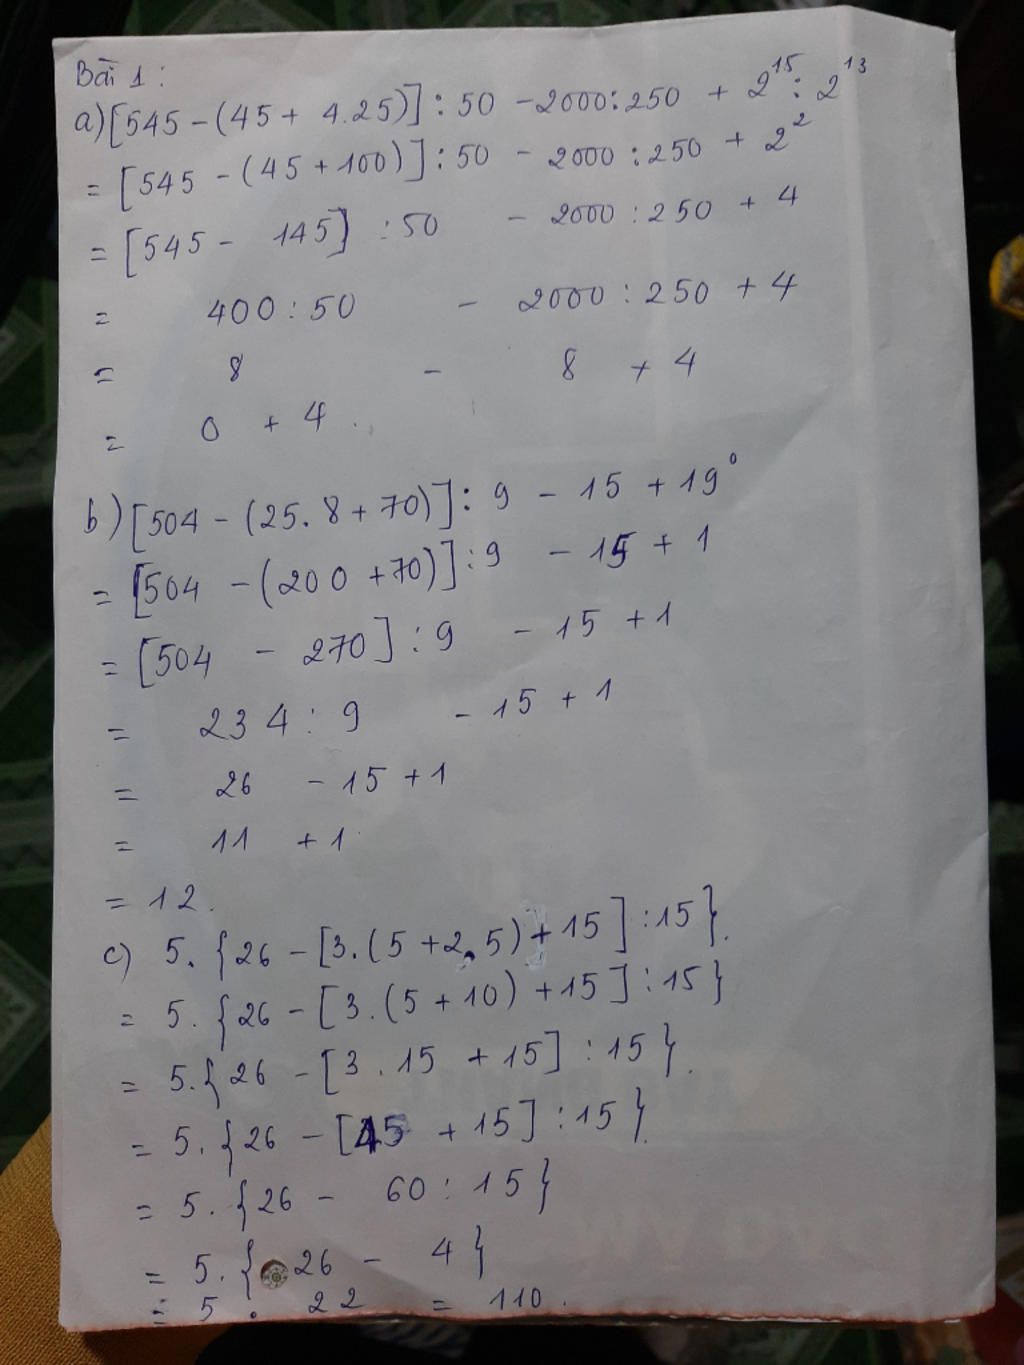 Bài 1:
a) [545 - (45 + 4.25)] : 50 - 2000 : 250 + 2¹⁵ : 2¹³
= [545 - (45 + 100)] : 50 - 2000 : 250 + 2²
= [545 - 145] : 50 - 2000 : 250 + 4
= 400 : 50 - 2000 : 250 + 4
= 8 - 8 + 4
= 0 + 4.
b) [504 - (25.8 + 70)] : 9 - 15 + 19⁰
= [504 - (200 + 70)] : 9 - 15 + 1
= [504 - 270] : 9 - 15 + 1
= 234 : 9 - 15 + 1
= 26 - 15 + 1
= 11 + 1
= 12.
c) 5. {26 - [3.(5 + 2.5) + 15] : 15}.
= 5. {26 - [3.(5 + 10) + 15] : 15}
= 5. {26 - [3.15 + 15] : 15}.
= 5. {26 - [45 + 15] : 15}.
= 5. {26 - 60 : 15}
= 5. {26 - 4}
= 5 . 22 = 110.